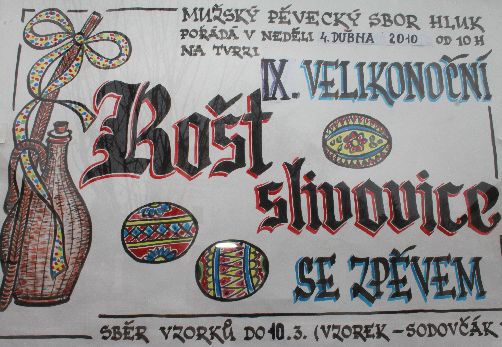 MUŽSKÝ PĚVECKÝ SBOR HLUK
POŘÁDÁ V NEDĚLI 4. DUBNA 2010 OD 10 H
NA TVRZI
IX. VELIKONOČNÍ
Košt
slivovice
SE ZPĚVEM
SBĚR VZORKŮ DO 10.3. (VZOREK – SODOVČÁK